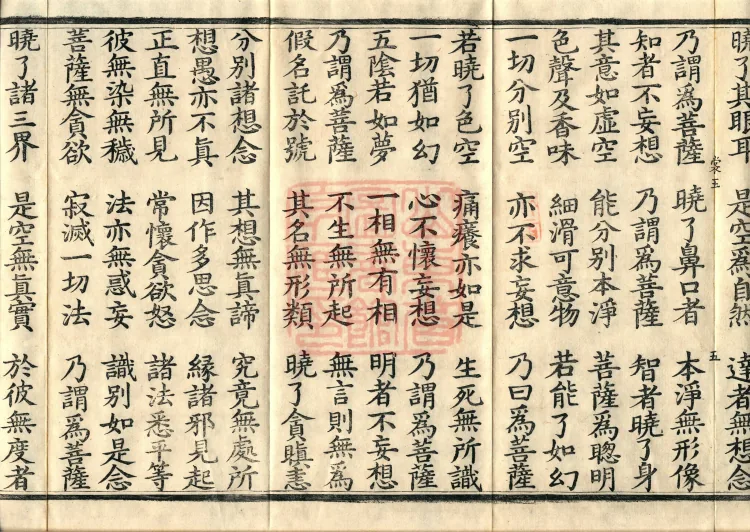 曉了其眼耳 是空爲自然 達者無想念
裳五 五
乃謂爲菩薩 曉了鼻口者 本淨無形像
知者不妄想 乃謂爲菩薩 智者曉了身
其意如虛空 能分別本淨 菩薩爲聰明
色聲及香味 細滑可意物 若能了如幻
一切分別空 亦不求妄想 乃曰爲菩薩
若曉了色空 痛癢亦如是 生死無所識
一切猶如幻 心不懷妄想 乃謂爲菩薩
五陰若如夢 一相無有相 明者不妄想
乃謂爲菩薩 不生無所起 無言則無爲
假名託於號 其名無形類 曉了貪瞋恚
分別諸想念 其想無眞諦 究竟無處所
想愚亦不眞 因作多思念 緣諸邪見起
正直無所見 常懷貪欲怒 諸法悉平等
彼無染無穢 法亦無惑妄 識別如是念
菩薩無貪欲 寂滅一切法 乃謂爲菩薩
曉了諸三界 是空無眞實 於彼無度者